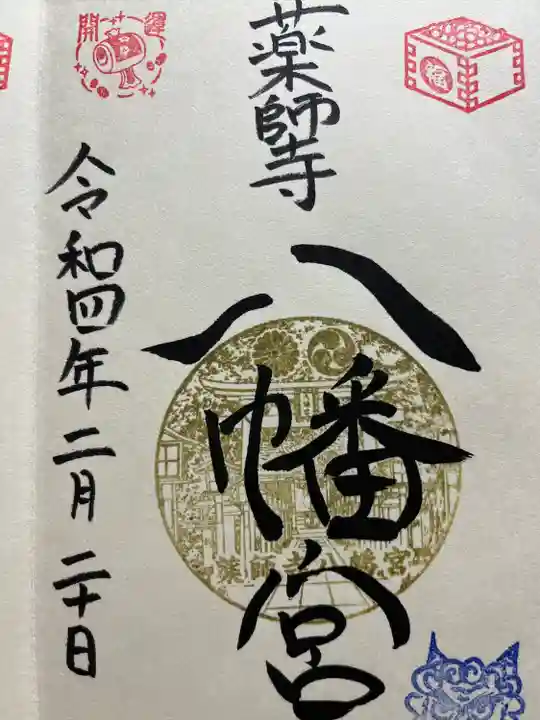 薬師寺
八幡宮
令和四年二月二十日
開運
福
薬師寺八幡宮